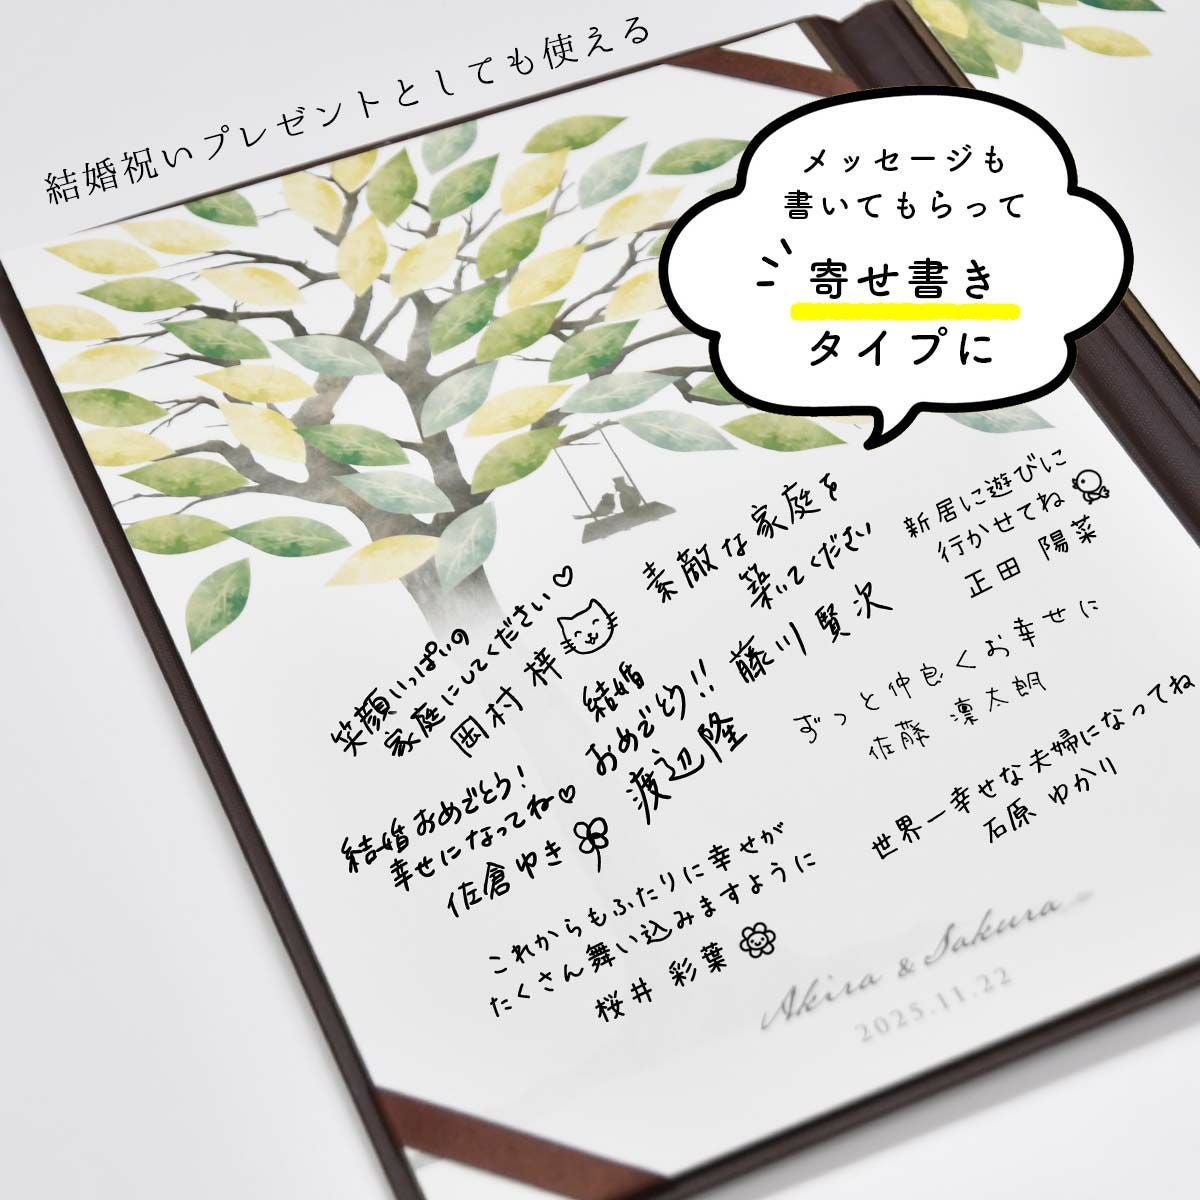 結婚祝いプレゼントとしても使える
メッセージも
書いてもらって
寄せ書き
タイプに
笑顔いっぱいの
家庭にしてください♡
岡村 梓
素敵な家庭を
築いてください
藤川 賢次
新居に遊びに
行かせてね
正田 陽菜
結婚
おめでとう!!
渡辺隆
ずっと仲良くお幸せに
佐藤 凛太朗
結婚おめでとう!
幸せになってね♡
佐倉 ゆき
世界一幸せな夫婦になってね
石原 ゆかり
これからもふたりに幸せが
たくさん舞い込みますように
桜井 彩葉
Akira & Sakura
2025.11.22